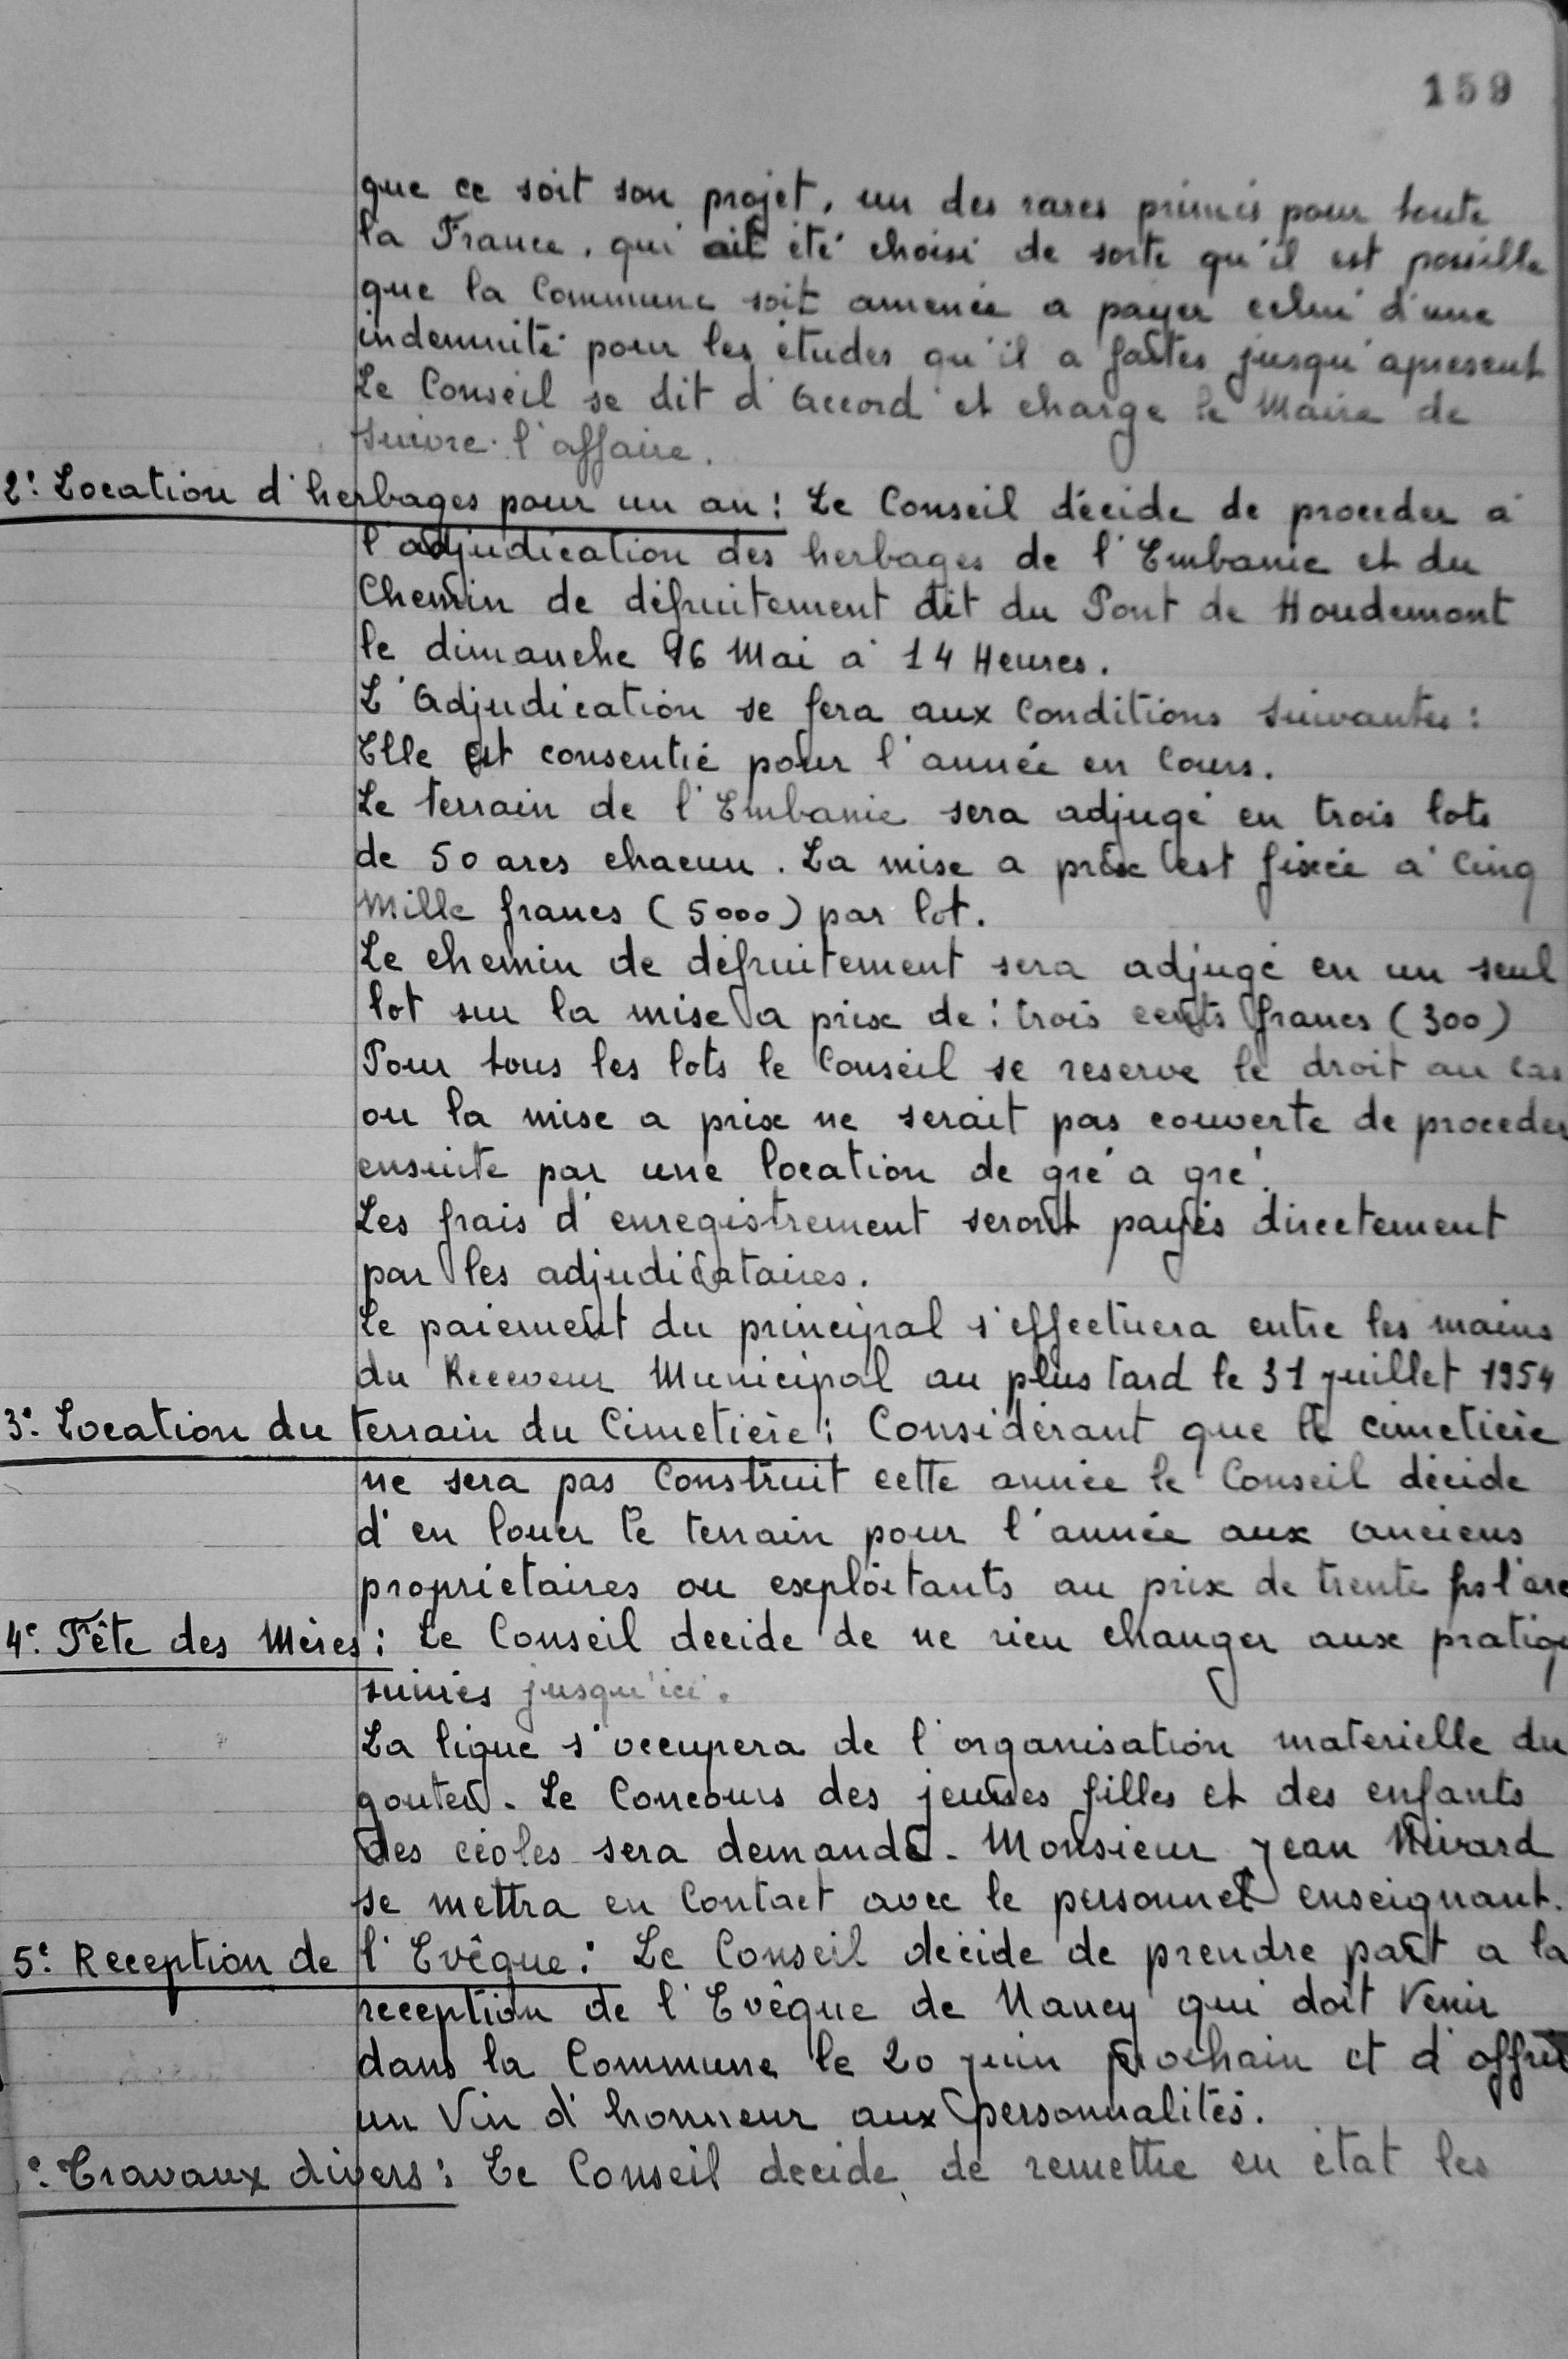 159
que ce soit son projet, un des rares primés pour toute
la France, qui ait été choisi de sorte qu'il est possible
que la Commune soit amenée a payer celui d'une
indemnité pour les études qu'il a faites jusqu'apresent
Le Conseil se dit d'Accord et charge le Maire de
suivre l'affaire.
2° Location d'herbages pour un an : Le Conseil décide de proceder à
l'adjudication des herbages de l'Embanie et du
Chemin de défruitement dit du Pont de Houdemont
le dimanche 16 Mai à 14 Heures.
L'Adjudication se fera aux Conditions suivantes :
Elle est consentie pour l'année en Cours.
Le terrain de l'Embanie sera adjugé en trois lots
de 50 ares chacun. La mise a prix est fixée à Cinq
Mille francs (5000) par lot.
Le chemin de défruitement sera adjugé en un seul
lot sur la mise a prix de : trois cents francs (300)
Pour tous les lots le Conseil se reserve le droit au cas
ou la mise a prix ne serait pas couverte de proceder
ensuite par une location de gré a gré.
Les frais d'enregistrement seront payés directement
par les adjudicataires.
Le paiement du principal s'effectuera entre les mains
du Receveur Municipal au plus tard le 31 juillet 1954
3° Location du terrain du Cimetière : Considérant que le cimetière
ne sera pas Construit cette année le Conseil décide
d'en louer le terrain pour l'année aux anciens
propriétaires ou exploitants au prix de trente frs l'are
4° Fête des Mères : Le Conseil decide de ne rien changer aux pratiqu
suivies jusqu'ici.
La ligue s'occupera de l'organisation materielle du
gouter. Le Concours des jeunes filles et des enfants
des écoles sera demandé. Monsieur Jean
se mettra en Contact avec le personnel enseignant.
5° Reception de l'Evêque : Le Conseil décide de prendre part a la
reception de l'Evêque de Nancy qui doit Venir
dans la Commune le 20 juin prochain et d'offrir
un Vin d'honneur aux personnalités.
° Travaux divers : Le Conseil decide de remettre en état les